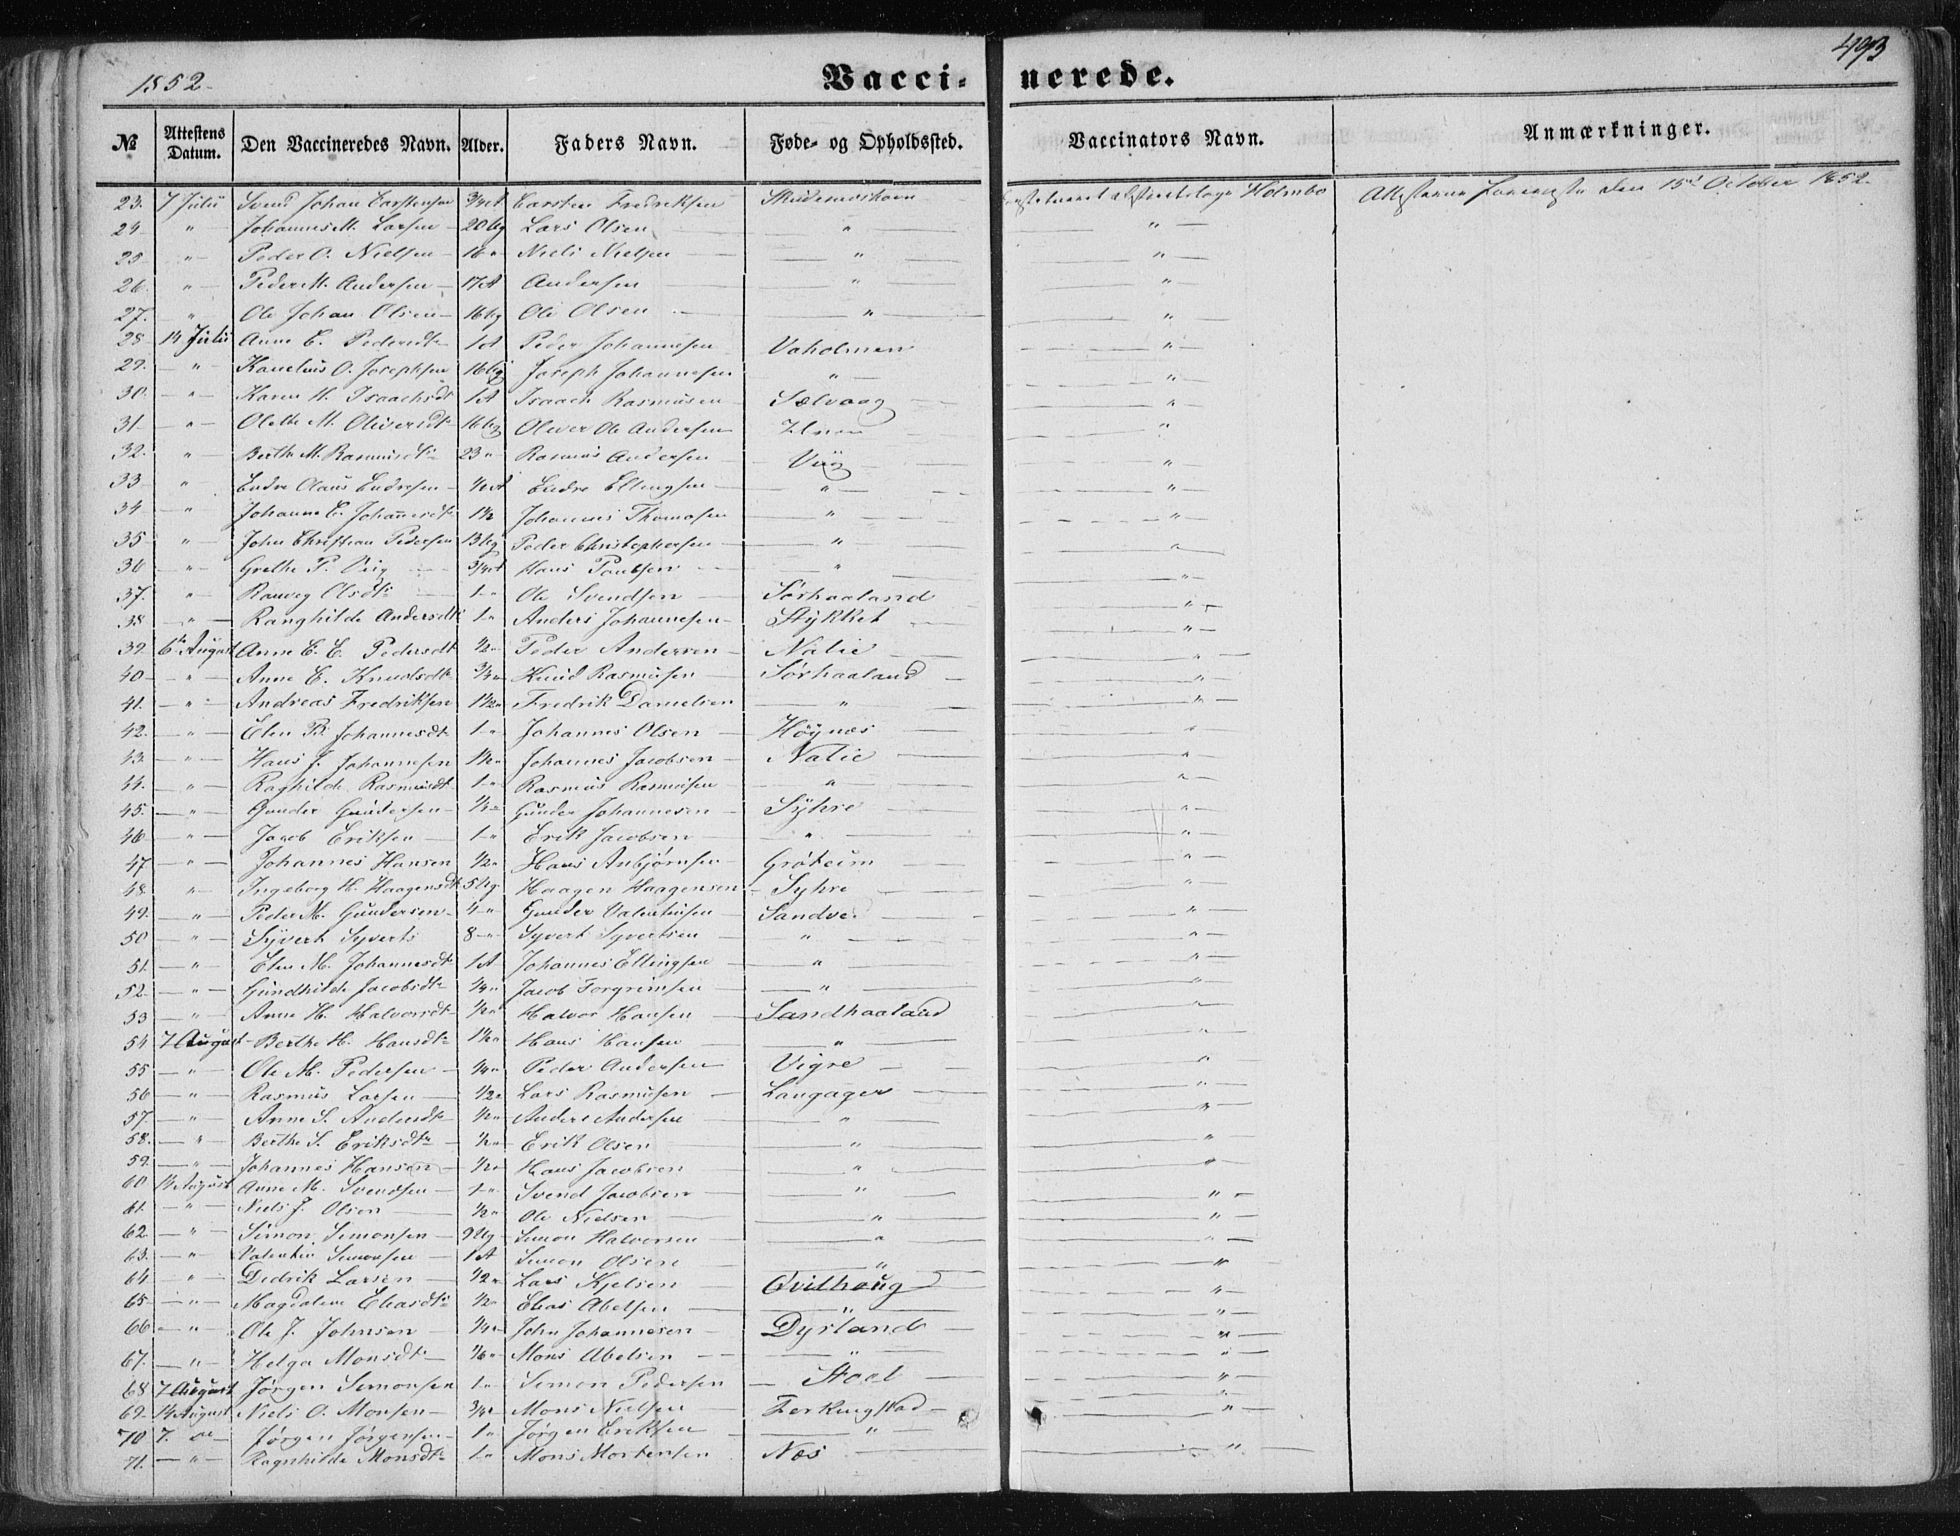 493
1852
Vacci- nerede.
№ Attestens Datum. Den Vaccineredes Navn. Alder. Faders Navn. Føde- og Opholdssted. Vaccinators Navn. Anmærkninger.
23. 7 Julii Svend Johan Carstensen 3/4 A Carsten Fredriksen Skudesneshavn Holmbo Attesterne den 15de October 1852.
24 " Johannes M. Larsen 20 Ug Lars Olsen " "
25 " Peder O. Nielsen 16 " Niels Nielsen " "
26. " Peder M. Andersen 17 A Andersen " "
27. " Ole Johan Olsen 16 Ug Ole Olsen " "
28 14 Julii Anne E. Pedersdt 1 A Peder Johannesen Vaholmen "
29. " Kanelius O. Josephsen 16 Ug Joseph Johannesen " "
30. " Karen H. Isaachsdt 1 A Isaach Rasmusen Sælvaag "
31. " Olethe M. Oliversdt 16 Ug Oliver Ole Andersen "
32. " Berthe M. Rasmusdt 23 " Rasmus Andersen Viig "
33 " Endre Claus Endresen 1/2 A Endre Ellingsen " "
34 " Johanne E. Johannesdt 1 1/2 Johannes Thomasen " "
35 " John Christian Pedersen 13 Ug Peder Christophersen " "
36 " Grethe P. Viig 3/4 A Hans Paulsen " "
37. " Ranveg Olsdt 1 " Ole Svendsen Sørhaaland "
38 " Ranghilde Andersdt 1 " Anders Johannesen Stykket "
39. 6te August Anne E. E. Pedersdt 1/2 " Peder Andersen Nalie "
40 " Anne E. Knudsdt 3/4 " Knud Rasmusen Sørhaaland "
41. " Andreas Fredriksen 1 1/2 " Fredrik Danielsen " "
42. " Elen B. Johannesdt 1 " Johannes Olsen Höynæs "
43. " Hans J. Johannesen 1 1/2 " Johannes Jacobsen Nalie "
44. " Raghilde Rasmusdt 1 " Rasmus Rasmusen " "
45. " Gunder Gundersen 1/2 " Gunder Johannesen Syhre "
46 " Jacob Eriksen 1 " Erik Jacobsen " "
47 " Johannes Hansen 1/2 " Hans Anbjørnsen Grøteim "
48. " Ingeborg H. Haagensdt 5 Ug Haagen Haagensen Syhre "
49. " Peder M. Gundersen 4 " Gunder Valentinsen Sandve "
50 " Syvert Syverts 8 " Syvert Syvertsen " "
51. " Elen M. Johannesdt 1 A Johannes Ellingsen " "
52. " Gundhilde Jacobsdt 1/4 " Jacob Torgrimsen " "
53 " Anne H. Halvorsdt 1/2 " Halvor Hansen Sandhaaland "
54 7 August Berthe H. Hansdt 1 1/2 " Hans Hansen " "
55 " Ole M. Pedersen 1/4 " Peder Andersen Vigre "
56 " Rasmus Larsen 1/2 " Lars Rasmusen Langager "
57. " Anne S. Andersdt 1/2 " Anders Andersen " "
58. " Berthe S. Eriksdt 1/2 " Erik Olsen " "
59. " Johannes Hansen 1/2 " Hans Jacobsen " "
60 14 August Anne M. Svendsen 1 " Svend Jacobsen " "
61. " Niels J. Olsen 1/2 " Ole Nielsen " "
62. " Simon Simonsen 9 Ug Simon Halvorsen " "
63. " Valentin Simonsen 1 A Simon Olsen " "
64 " Didrik Larsen 1/2 " Lars Kjelsen Qvilhaug "
65 " Magdalene Eliasdt 1/2 " Elias Abelsen " "
66 " Ole J. Johnsen 1/4 " John Johannesen Dyrland "
67. " Helga Monsdt 1/6 " Mons Abelsen " "
68 7 August Jørgen Simonsen 1 " Simon Pedersen Stoel "
69 14 August Niels O. Monsen 3/4 " Mons Nielsen Ferkingstad "
70 7. " Jørgen Jørgensen 1 " Jørgen Eriksen " "
71. " Ragnhilde Monsdt 1 " Mons Mortensen Næs "